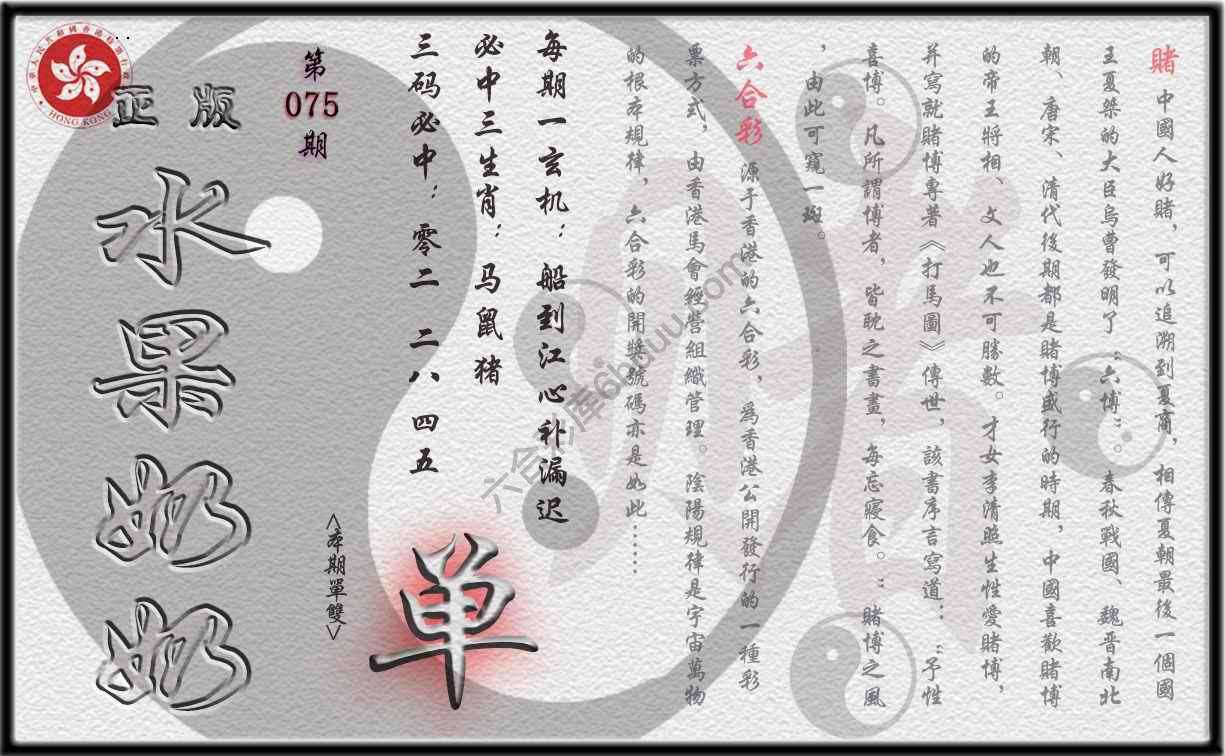 賭 中國人好賭，可以追溯到夏商，相傳夏朝最後一個國
王夏桀的大臣烏曹發明了“六博”。春秋戰國、魏晋南北
朝、唐宋、清代後期都是賭博盛行的時期，中國喜歡賭博
的帝王將相、文人也不可勝數。才女李清照生性愛賭博，
并寫就賭博專著《打馬圖》傳世，該書序言寫道：“予性
喜博。凡所謂博者，皆耽之晝畫，每忘寢食。”賭博之風
，由此可窺一斑。
六合彩 源于香港的六合彩，爲香港公開發行的一種彩
票方式，由香港馬會經營組織管理。陰陽規律是宇宙萬物
的根本規律，六合彩的開獎號碼亦是如此……
每期一玄机：船到江心补漏迟
必中三生肖：马鼠猪
三码必中：零二 二八 四五
单
<本期單雙>
第
075
期
正版
水果奶奶
HONG KONG
六合彩图库6hduu.com